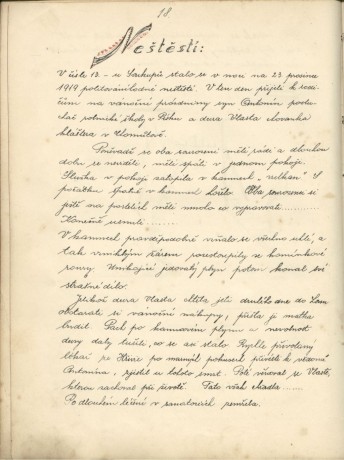 18
Neštěstí:
V čísle 12 - u Sarkupů stalo se v noci na 23 prosince
1919 politováníhodné neštěstí. V ten den přijeli k rodi-
čům na vánoční prázdniny syn Antonín poslu-
chač rolnické školy v Písku a dcera Vlasta chovanka
kláštera v
Poněvadž se oba sourozenci měli rádi a dlouhou
dobu se neviděli, měli spáti v jednom pokoji.
v pokoji zatopila v kamnech „uhlím“. S
počátku špatně v kamnech hořelo. Oba sourozenci si
ještě na postelích měli mnoho co vypravovati.......
Konečně usnuli.......
V kamnech pravděpodobně vzňalo se všechno uhlí, a
tak vzniklým žárem rozestoupily se kamínkové
roury. Unikající jedovatý plyn potom konal své
strašné dílo.
Jelikož dcera Vlasta chtěla jeti druhého dne do
obstarati si vánoční nákupy, přišla ji matka
budit. Pach po kamnovém plynu a nevolnost
dcery daly tušiti, co se asi stalo. Rychle přivolaný
lékař ze po marných pokusech přivésti k vědomí
Antonína, zjistil u tohoto smrt. Poté věnoval se Vlastě,
kterou zachoval při životě. Tato však chřadla......
Po dlouhém léčení v sanatoriích zemřela.